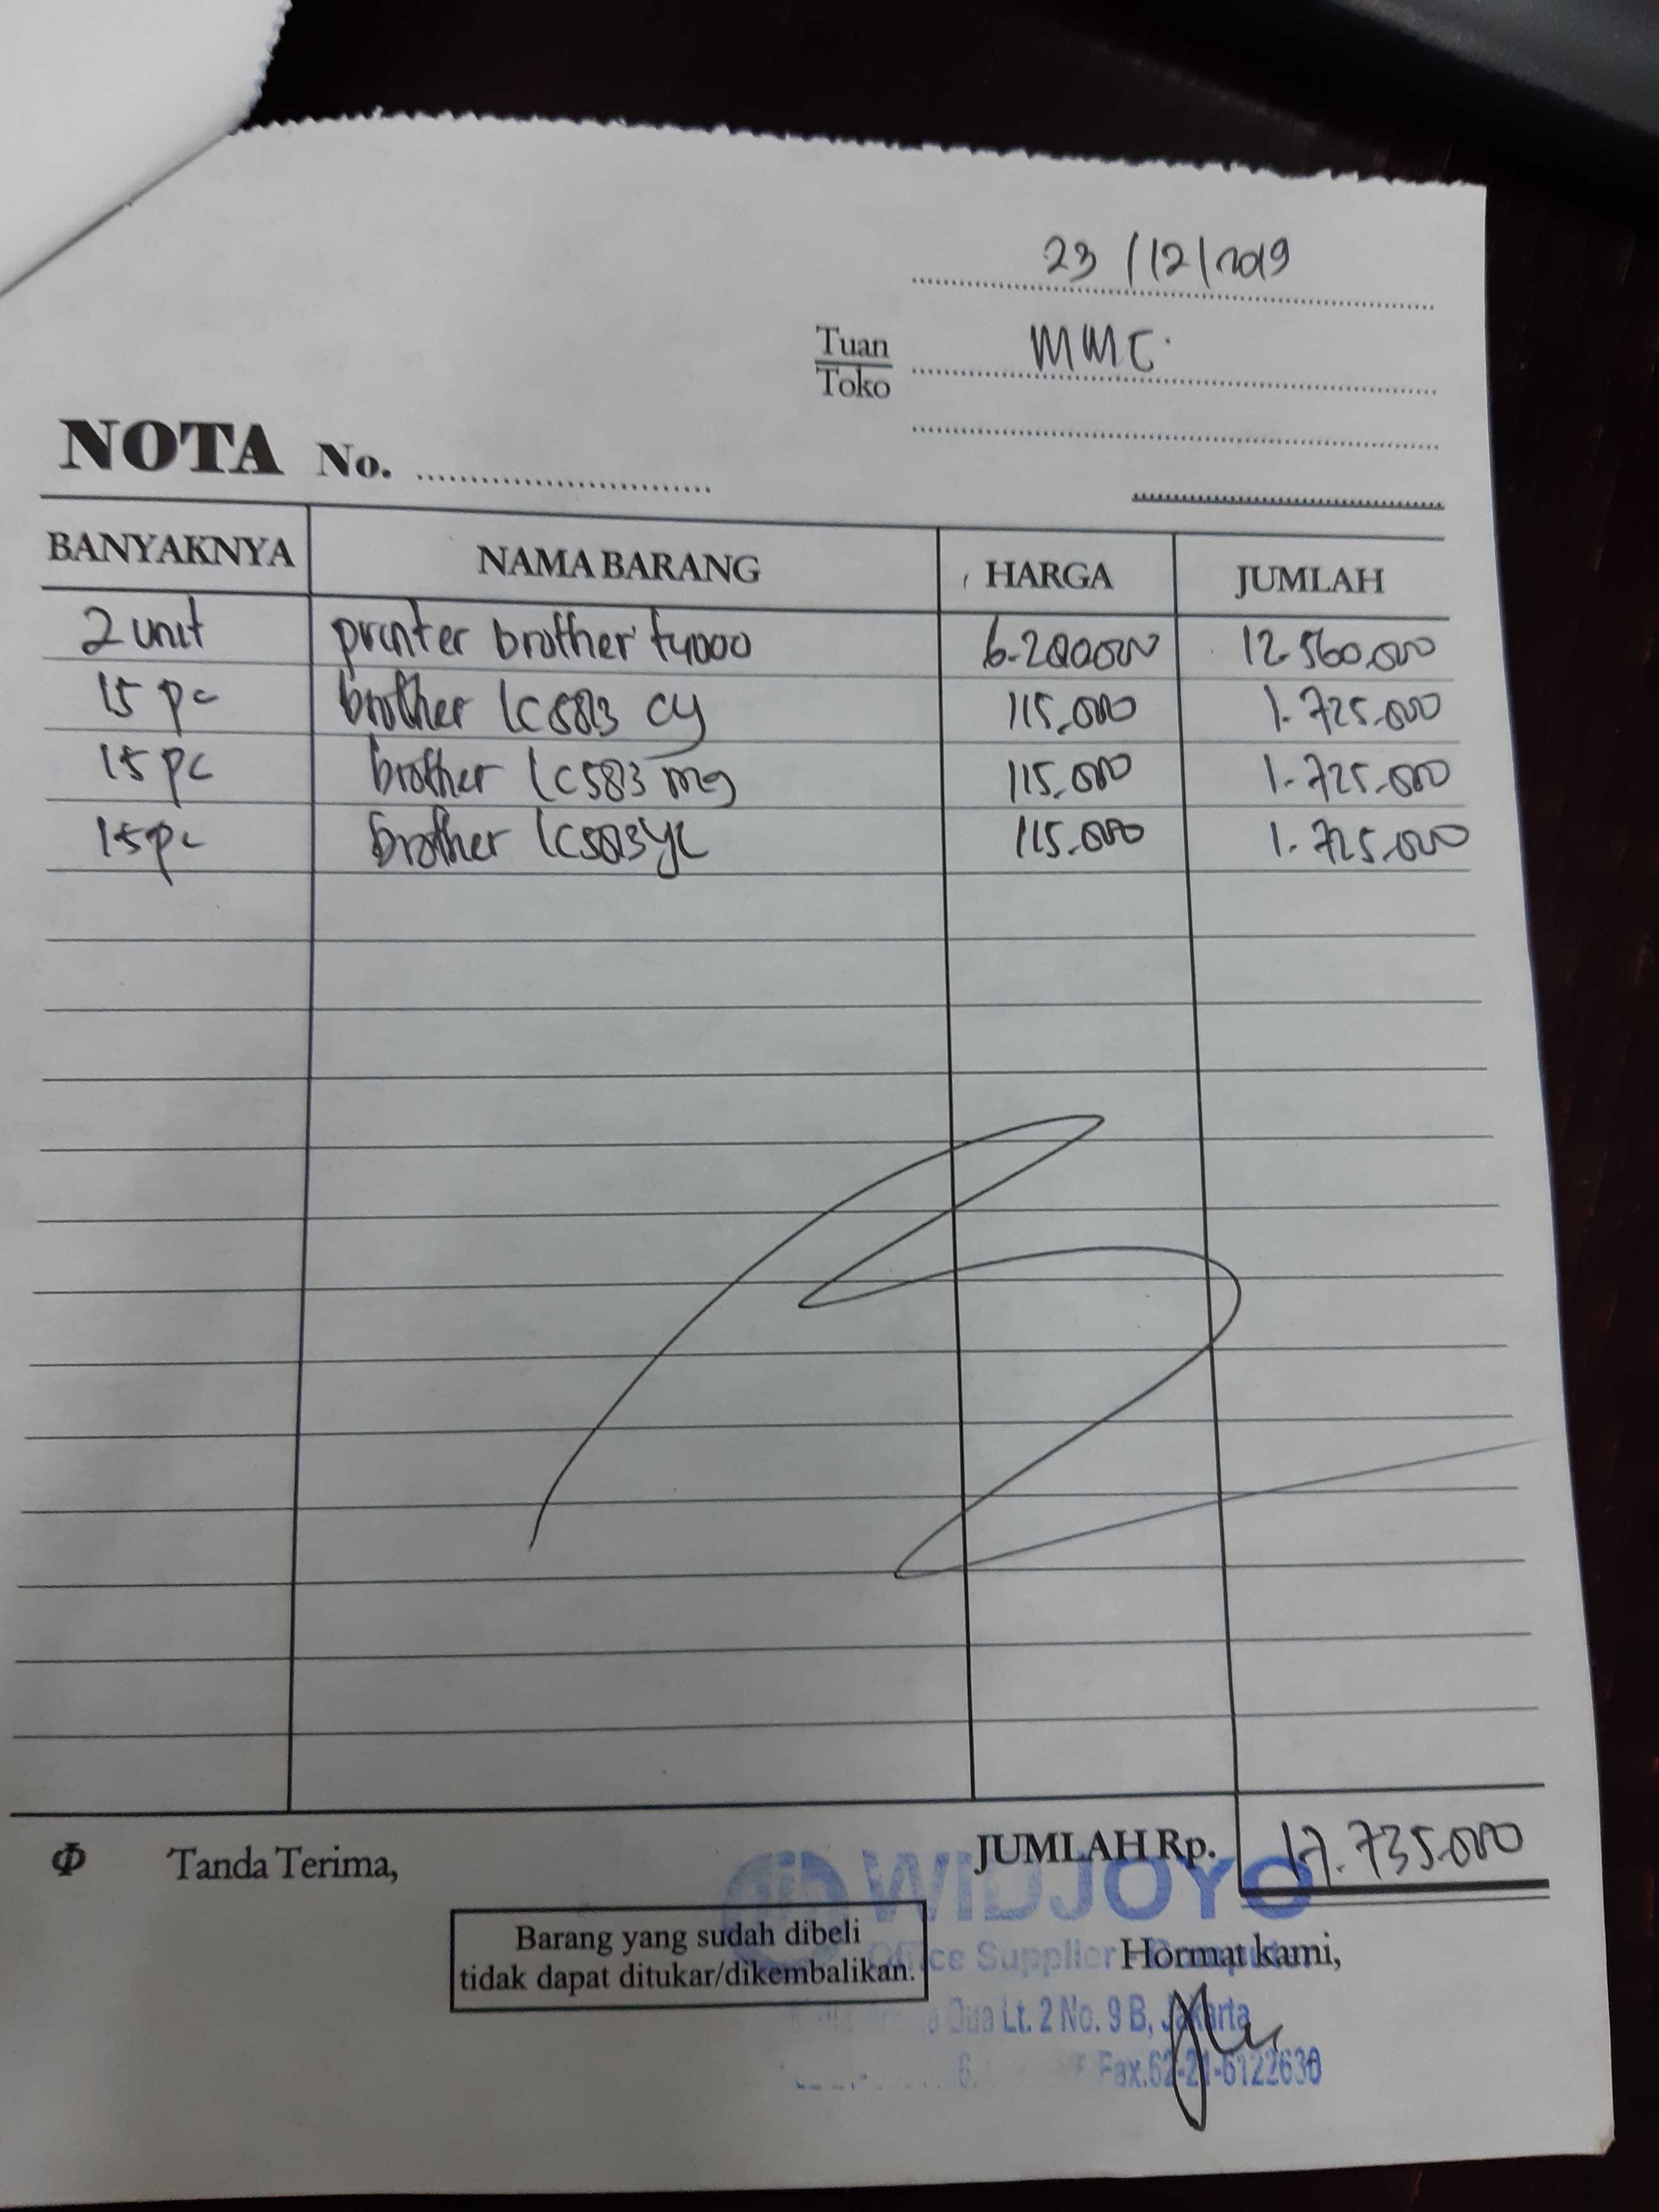 23/12/2019
Tuan
Toko
MMC.
NOTA No.
BANYAKNYA NAMA BARANG HARGA JUMLAH
2 unit printer brother t4000 12.560.000
15 pc brother lc583 cy 115.000 1.725.000
15 pc brother lc583 mg 115.000 1.725.000
15 pc brother lc583 yl 115.000 1.725.000
Φ Tanda Terima, JUMLAH Rp. 17.735.000
WIDJOYO
Barang yang sudah dibeli
tidak dapat ditukar/dikembalikan.
Office Supplier
Hormat kami,
Dua Lt. 2 No. 9 B, Jakarta
Fax.62-21-6122630